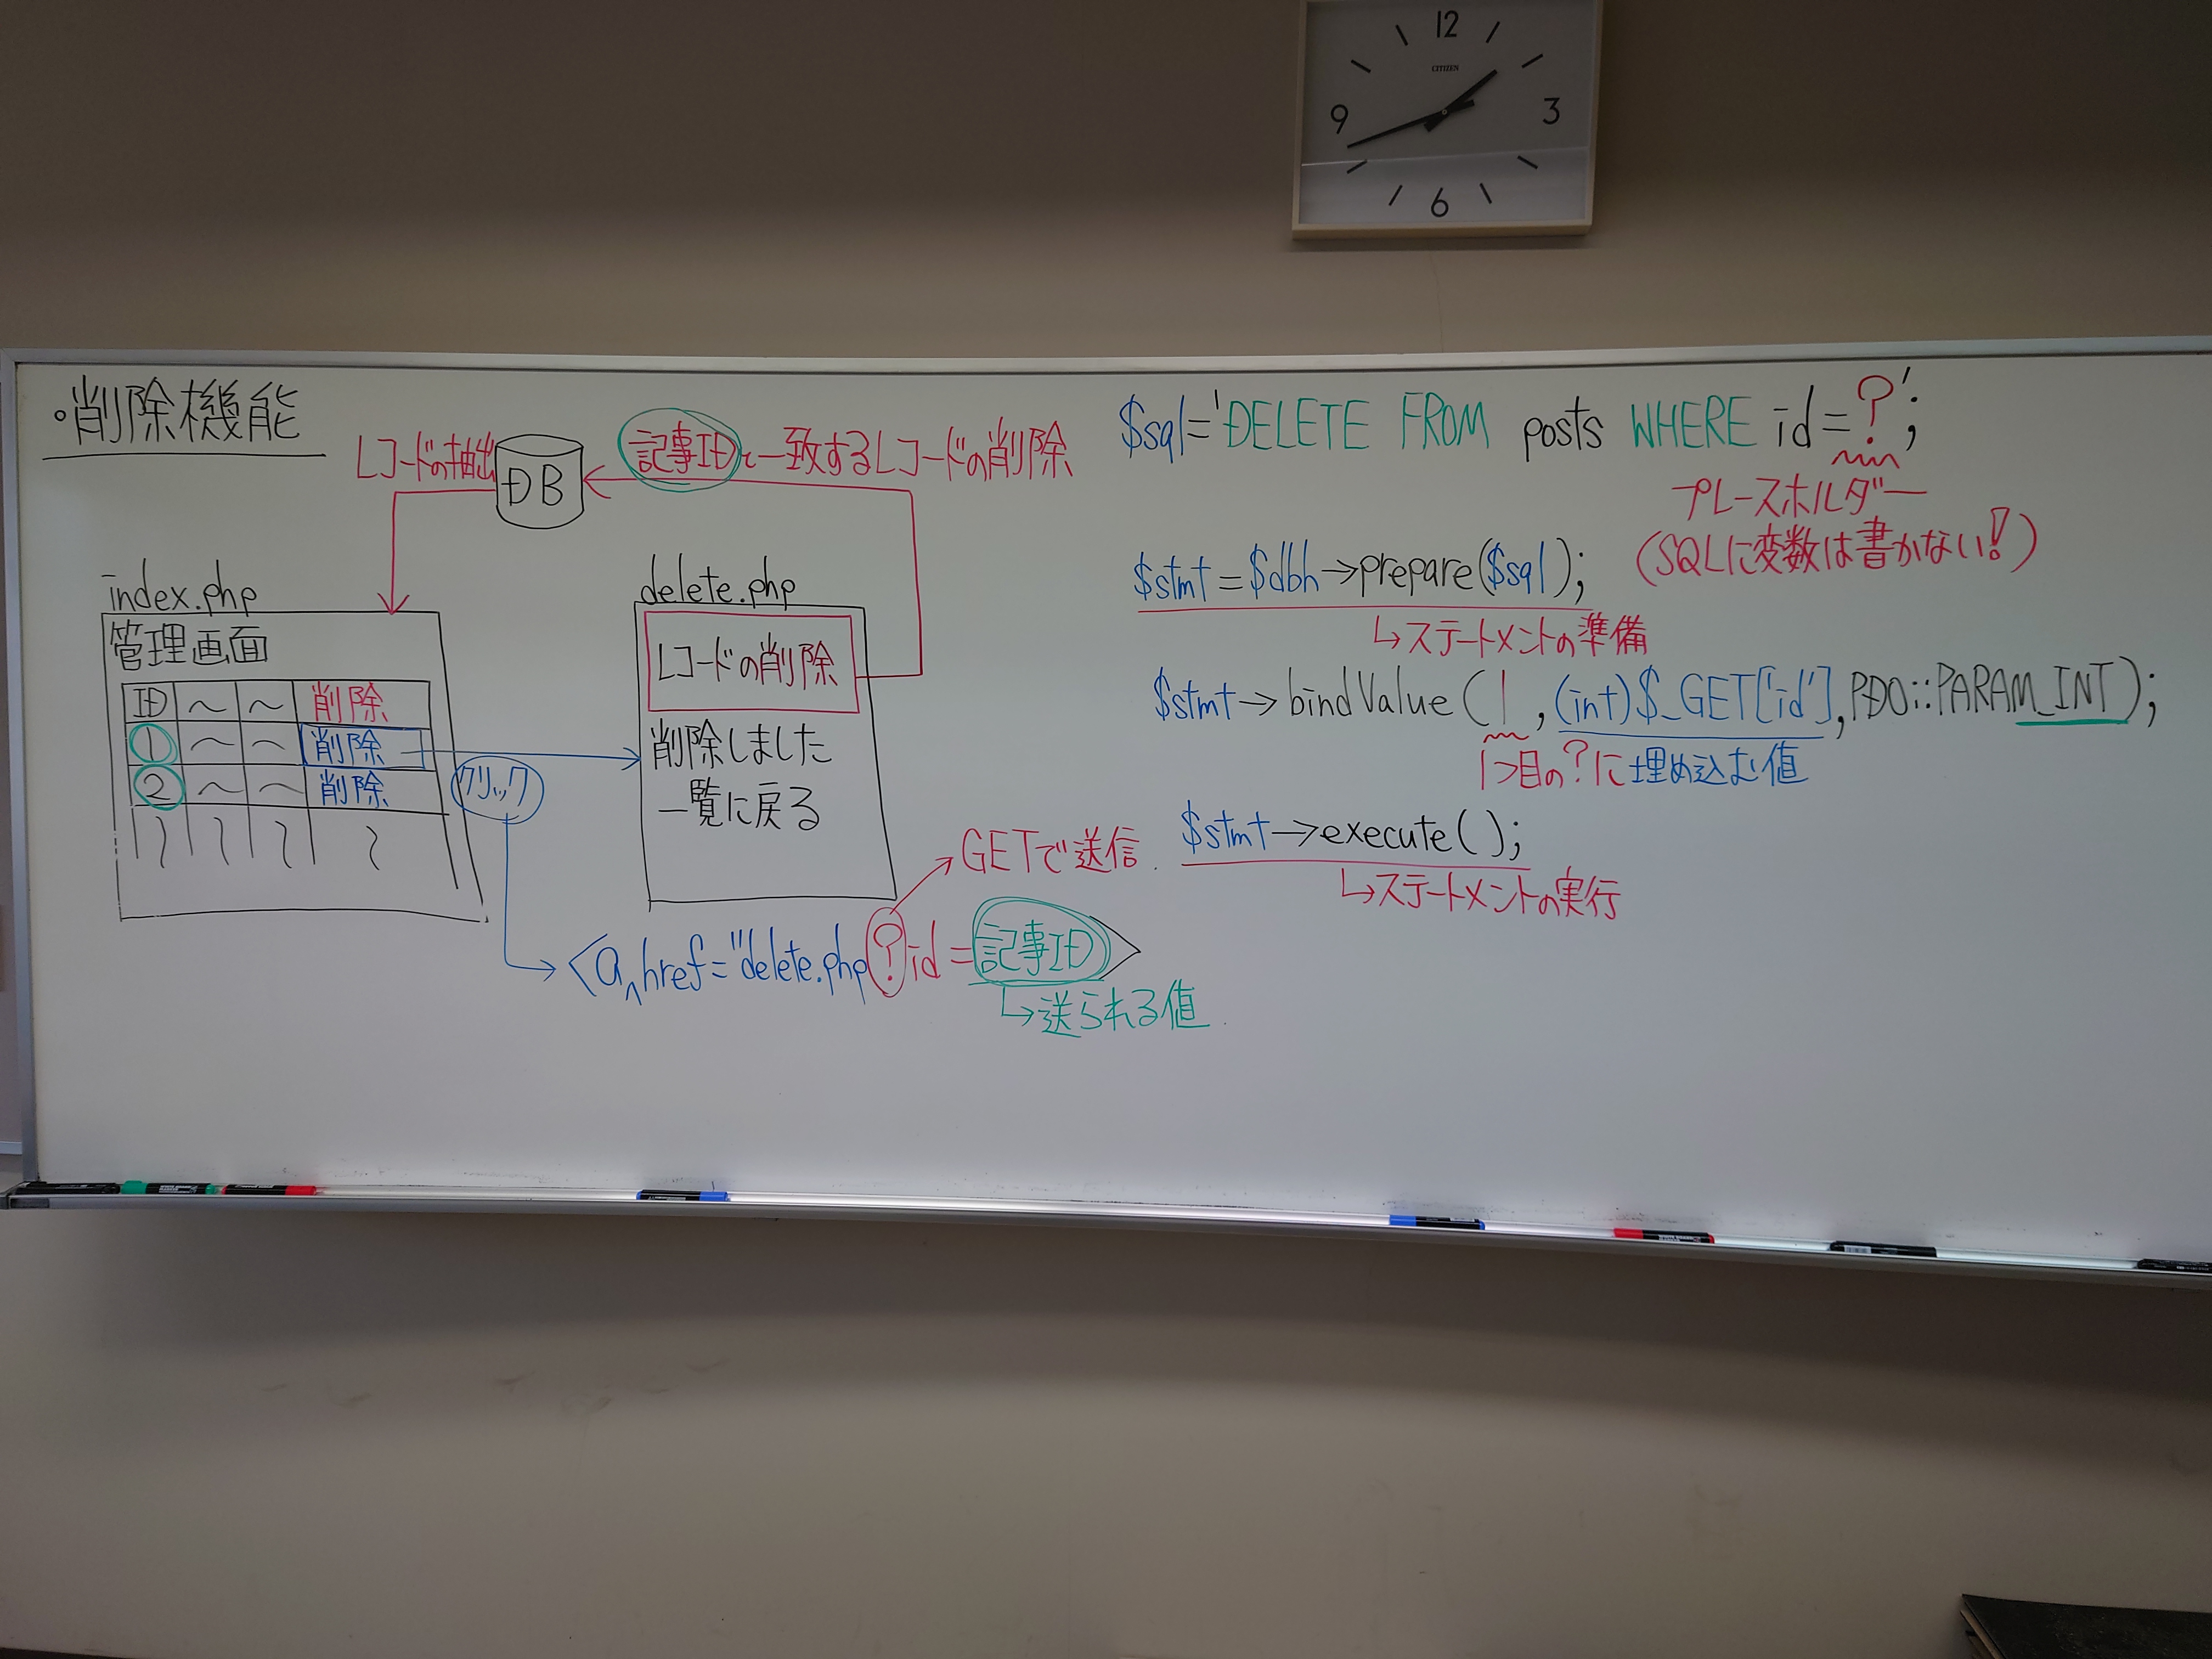 12
CITIZEN
9
3
6
・削除機能
レコードの抽出
DB
記事IDと一致するレコードの削除
index.php
管理画面
ID 〜 〜 削除
1 〜 〜 削除
2 〜 〜 削除
クリック
delete.php
レコードの削除
削除しました
一覧に戻る
GETで送信
<a href="delete.php?id=記事ID>
↳送られる値
$sql='DELETE FROM posts WHERE id=?';
プレースホルダー
(SQLに変数は書かない!)
$stmt=$dbh→prepare($sql);
↳ステートメントの準備
$stmt→bindValue(1,(int)$_GET['id'],PDO::PARAM_INT);
1つ目の?に埋め込む値
$stmt→execute();
↳ステートメントの実行